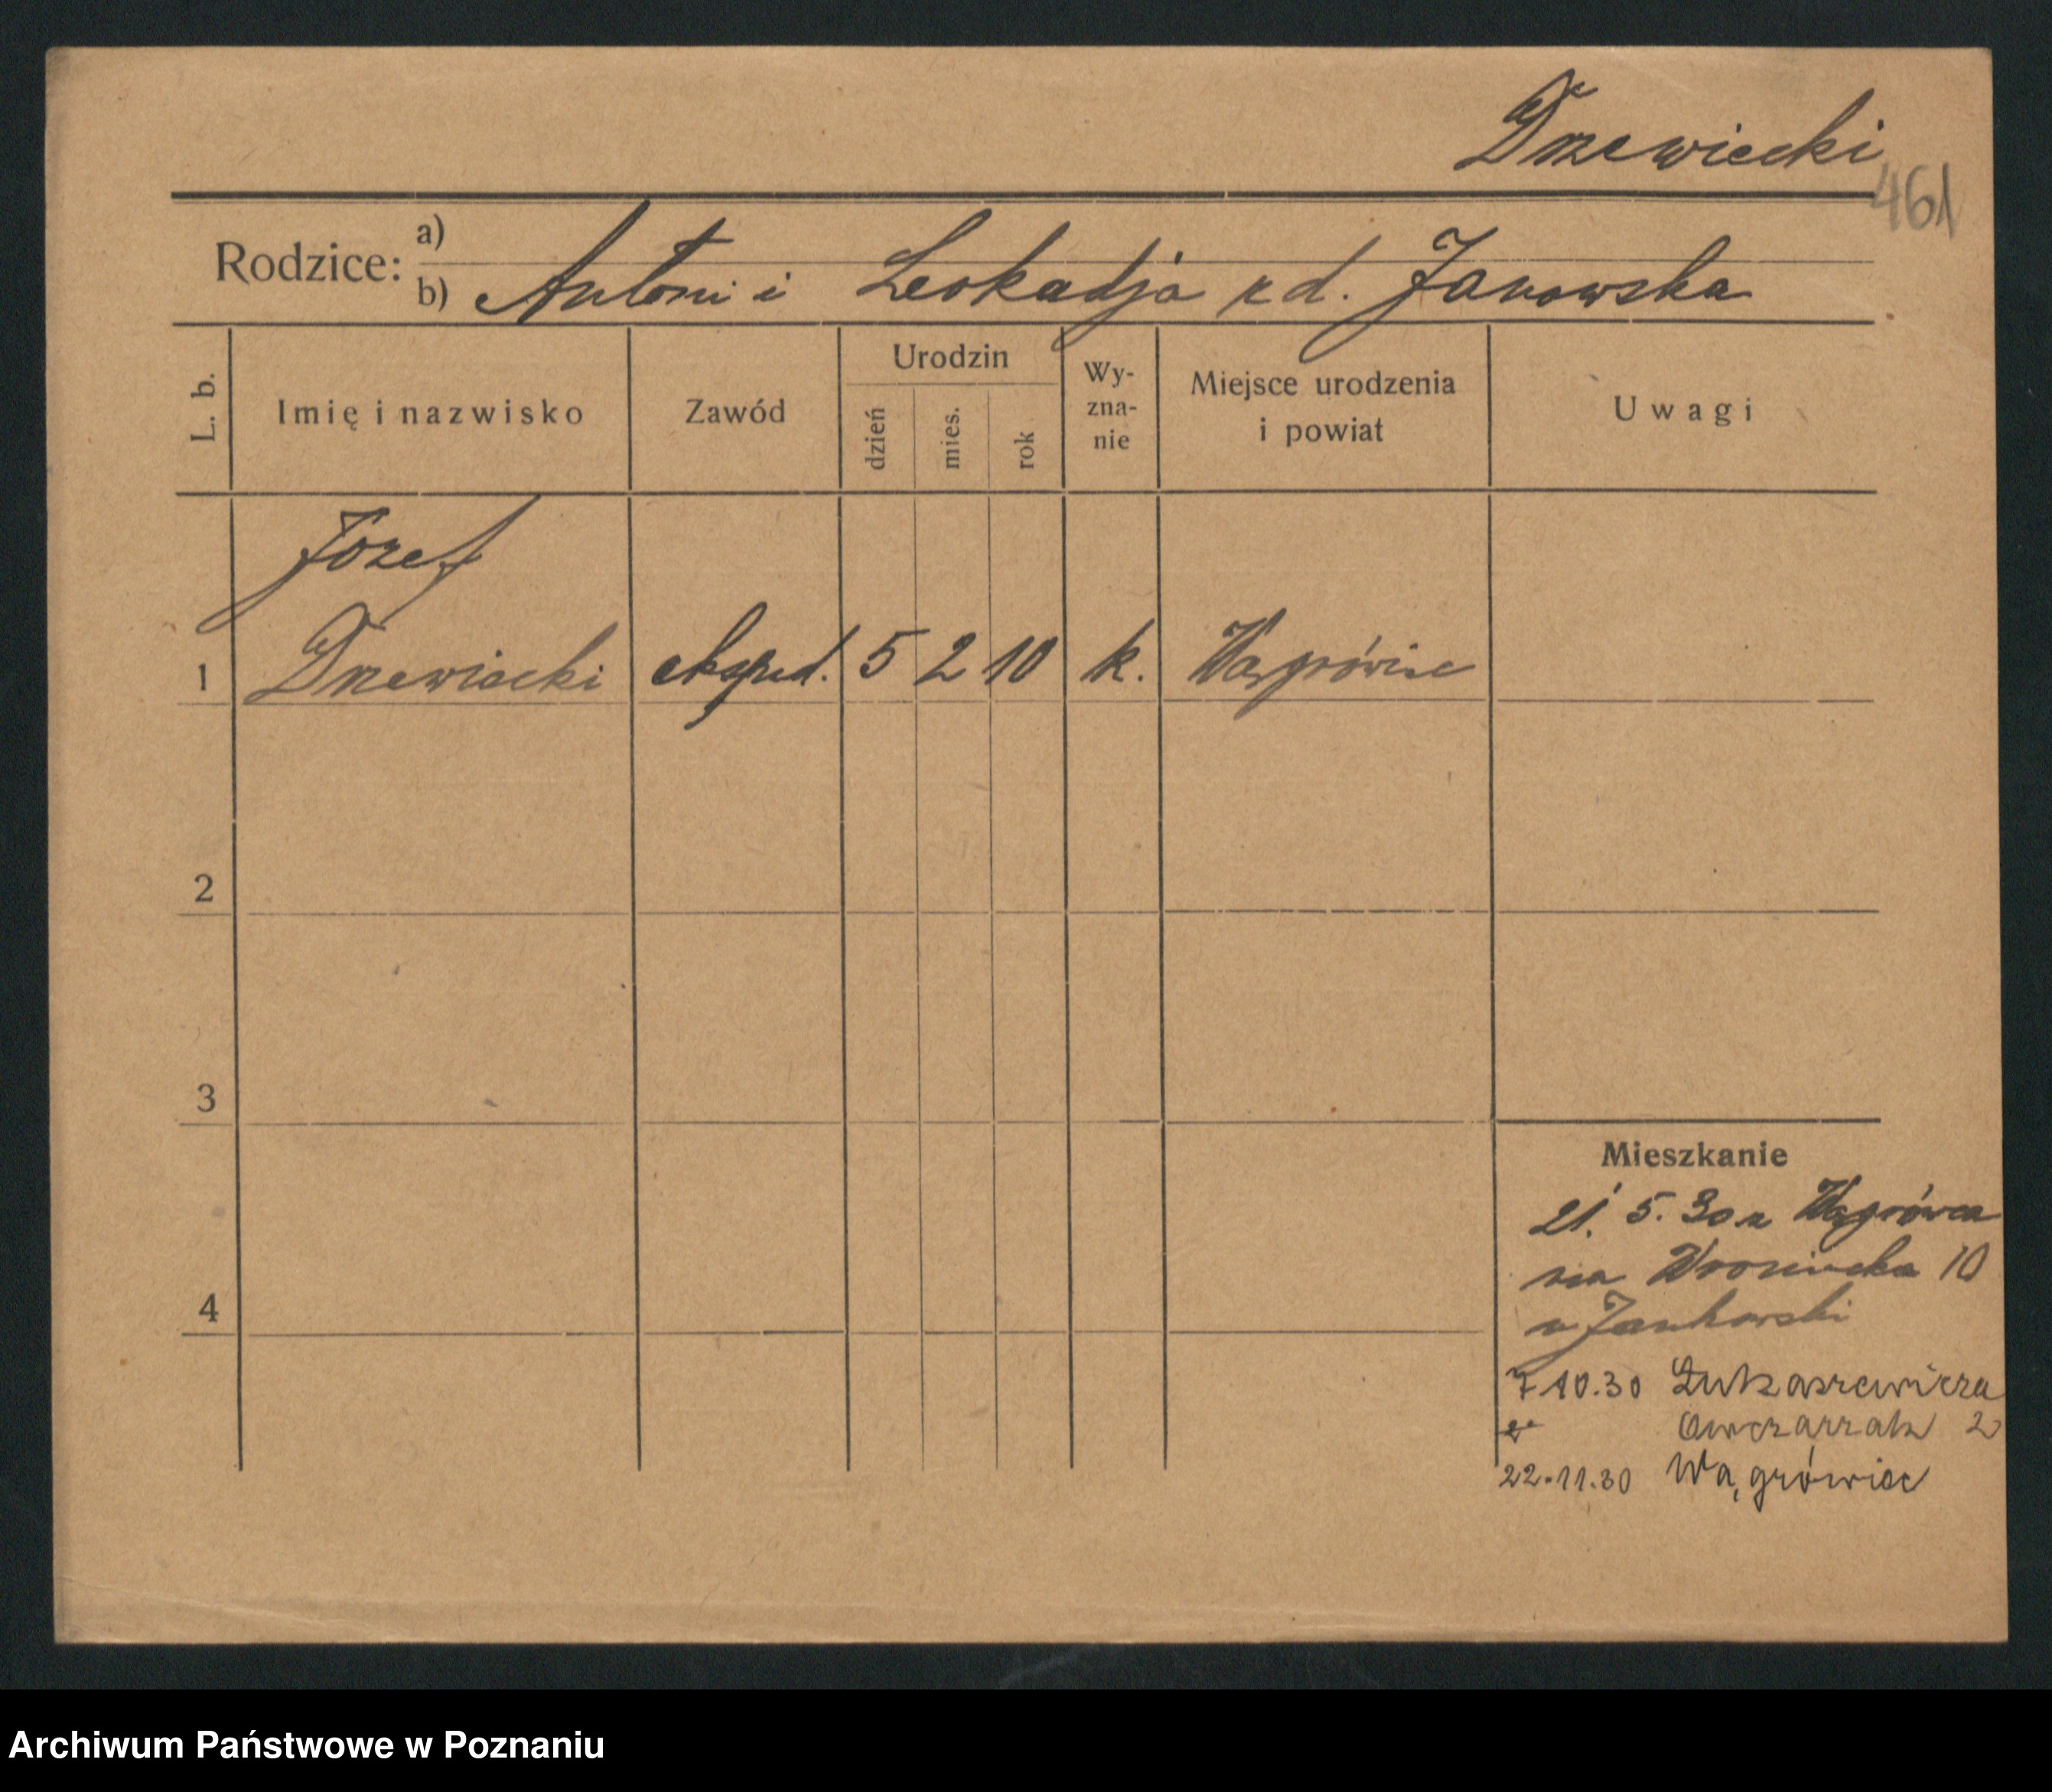 Drzewiecki
461
Rodzice: a)
b) Antoni i Leokadja z d. Janowska
L. b. Imię i nazwisko Zawód Urodzin dzień mies. rok Wy-zna-nie Miejsce urodzenia i powiat Uwagi
Józef
1 Drzewiecki eksped. 5 2 10 k. Wągrówiec
2
3
Mieszkanie
21. 5. 30 z Wągrówca
na Wroniecka 10
u Jankowski
4
7 10.30 Łukaszewicza
Owczarzak 2
22.11.30 Wągrówiec
Archiwum Państwowe w Poznaniu